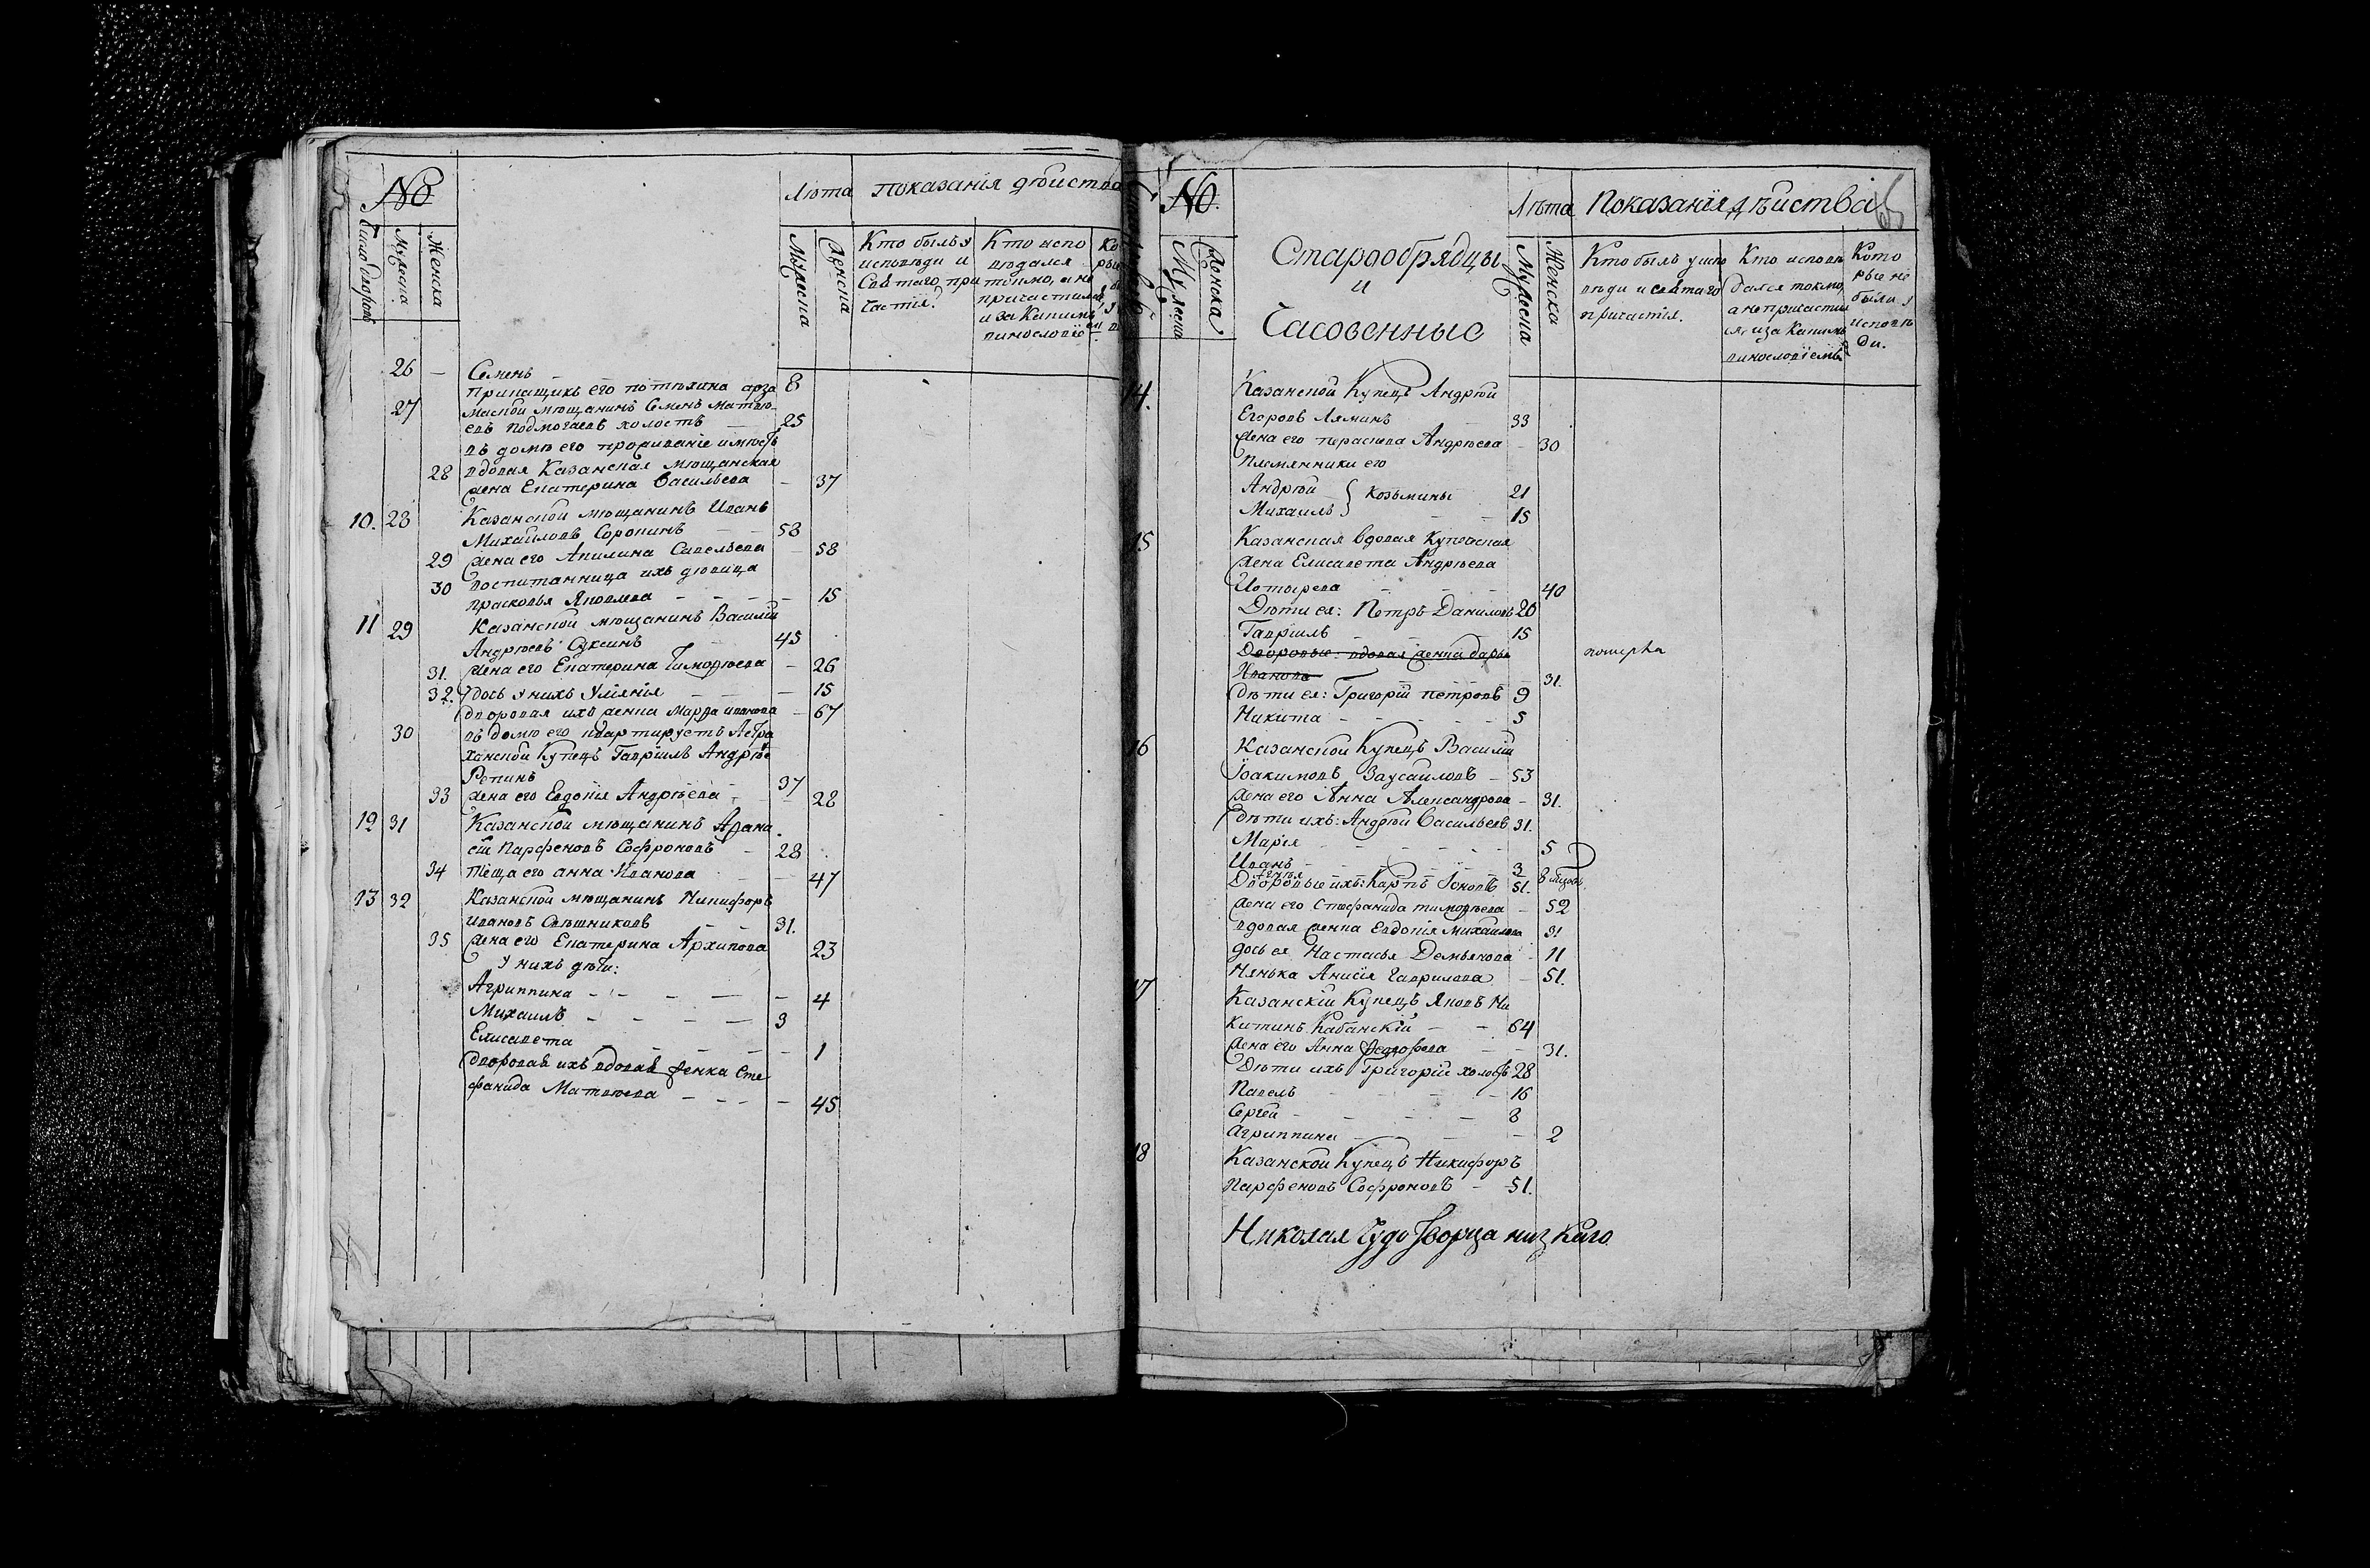 №
Лѣта показанія дѣйства
Число дворовъ
Мужеска
Женска
Мужеска
Женска
Кто былъ у
исповѣди и
Святаго при
частія.
Кто испо
вѣдался
токмо, а не
причастился
и за какимъ
винословіе
26 — Семенъ — — 8
прикащикъ его потѣхина арза
27 маской мѣщанинъ Семенъ Матвѣ
евъ Подмогаевъ холостъ — 25
въ домѣ его проживаніе имѣетъ
28 вдовая Казанская мѣщанская
жена Екатерина Васильева — 37
10. 28 Казанской мѣщанинъ Иванъ
Михайловъ Сорокинъ — 58
29 жена его Акилина Савельева — 58
30 воспитанница ихъ дѣвица
прасковья Яковлева — — — — 15
11 29 Казанской мѣщанинъ Василій
Андрѣевъ 45
31. жена его Екатерина Тимофѣева — 26
32. дочь у нихъ Уліянія — — — 15
дворовая ихъ женка Марфа иванова — 67
30 въ домѣ его квартируетъ Астра
ханской Купецъ Гавріилъ Андрѣе
Репинъ 37
33 жена его Евдокія Андрѣева — — 28
12 31 Казанской мѣщанинъ Афана
сей Парфеновъ Софроновъ — 28
34 тёща его анна Иванова — — 47
13 32 Казанской мѣщанинъ Никифоръ
ивановъ Свѣшниковъ — — 31.
35 жена его Екатерина Архипова 23
у нихъ дѣти:
Агриппина — — — — — 4
Михаилъ — — — — 3
Елисавета — — — — — 1
дворовая ихъ вдовая женка Сте
фанида Матвѣева — — — — 45
№
Мужеска
Женска
Старообрядцы
и
Часовенные
Лѣта Показанія дѣйства
Мужеска
Женска
Кто былъ у испо
вѣди и святаго
причастія.
Кто исповѣ
дался токмо,
а непричастил
ся, и за какимъ
винословіемъ
Кото
рые не
были у
исповѣ
ди.
14. Казанской Купецъ Андрей
Егоровъ Ляминъ — 33
жена его параскева Андрѣева — 30
Племянники его
Андрей } Козьмины 21
Михаилъ — — 15
15 Казанская вдовая Купеческая
жена Елисавета Андрѣева
40
Дѣти ея: Петръ Даниловъ 20
Гавріилъ 15
Дворовые: вдовая женка дарья
Иванова — 31. померла
дѣти ея: Григорій петровъ 9
Никита — — — — — 5
16 Казанской Купецъ Василій
Іоакимовъ Заусайловъ — 53
жена его Анна Александрова — 31.
дѣти ихъ: Андрей Васильевъ 31.
Марія — — — — — 5
Иванъ — — — — 3
8 мѣсяц.
Дворовые ихъ: Карпъ Іоновъ 51.
жена его Стефанида тимофѣева — 52
вдовая женка Евдокія Михайлова 31
дочь ея Настасья Демьянова — 11
Нянька Анисія Гаврилова — 51.
17 Казанскій Купецъ Яковъ Ни
китинъ Кабанскій — — 64
жена его Анна — 31.
Дѣти ихъ Григорій холостъ 28
Павелъ — — — 16
Сергей — — — — 8
агриппина — — — 2
18 Казанской Купецъ Никифоръ
Парфеновъ Софроновъ — 51.
Николая Чудотворца низкаго